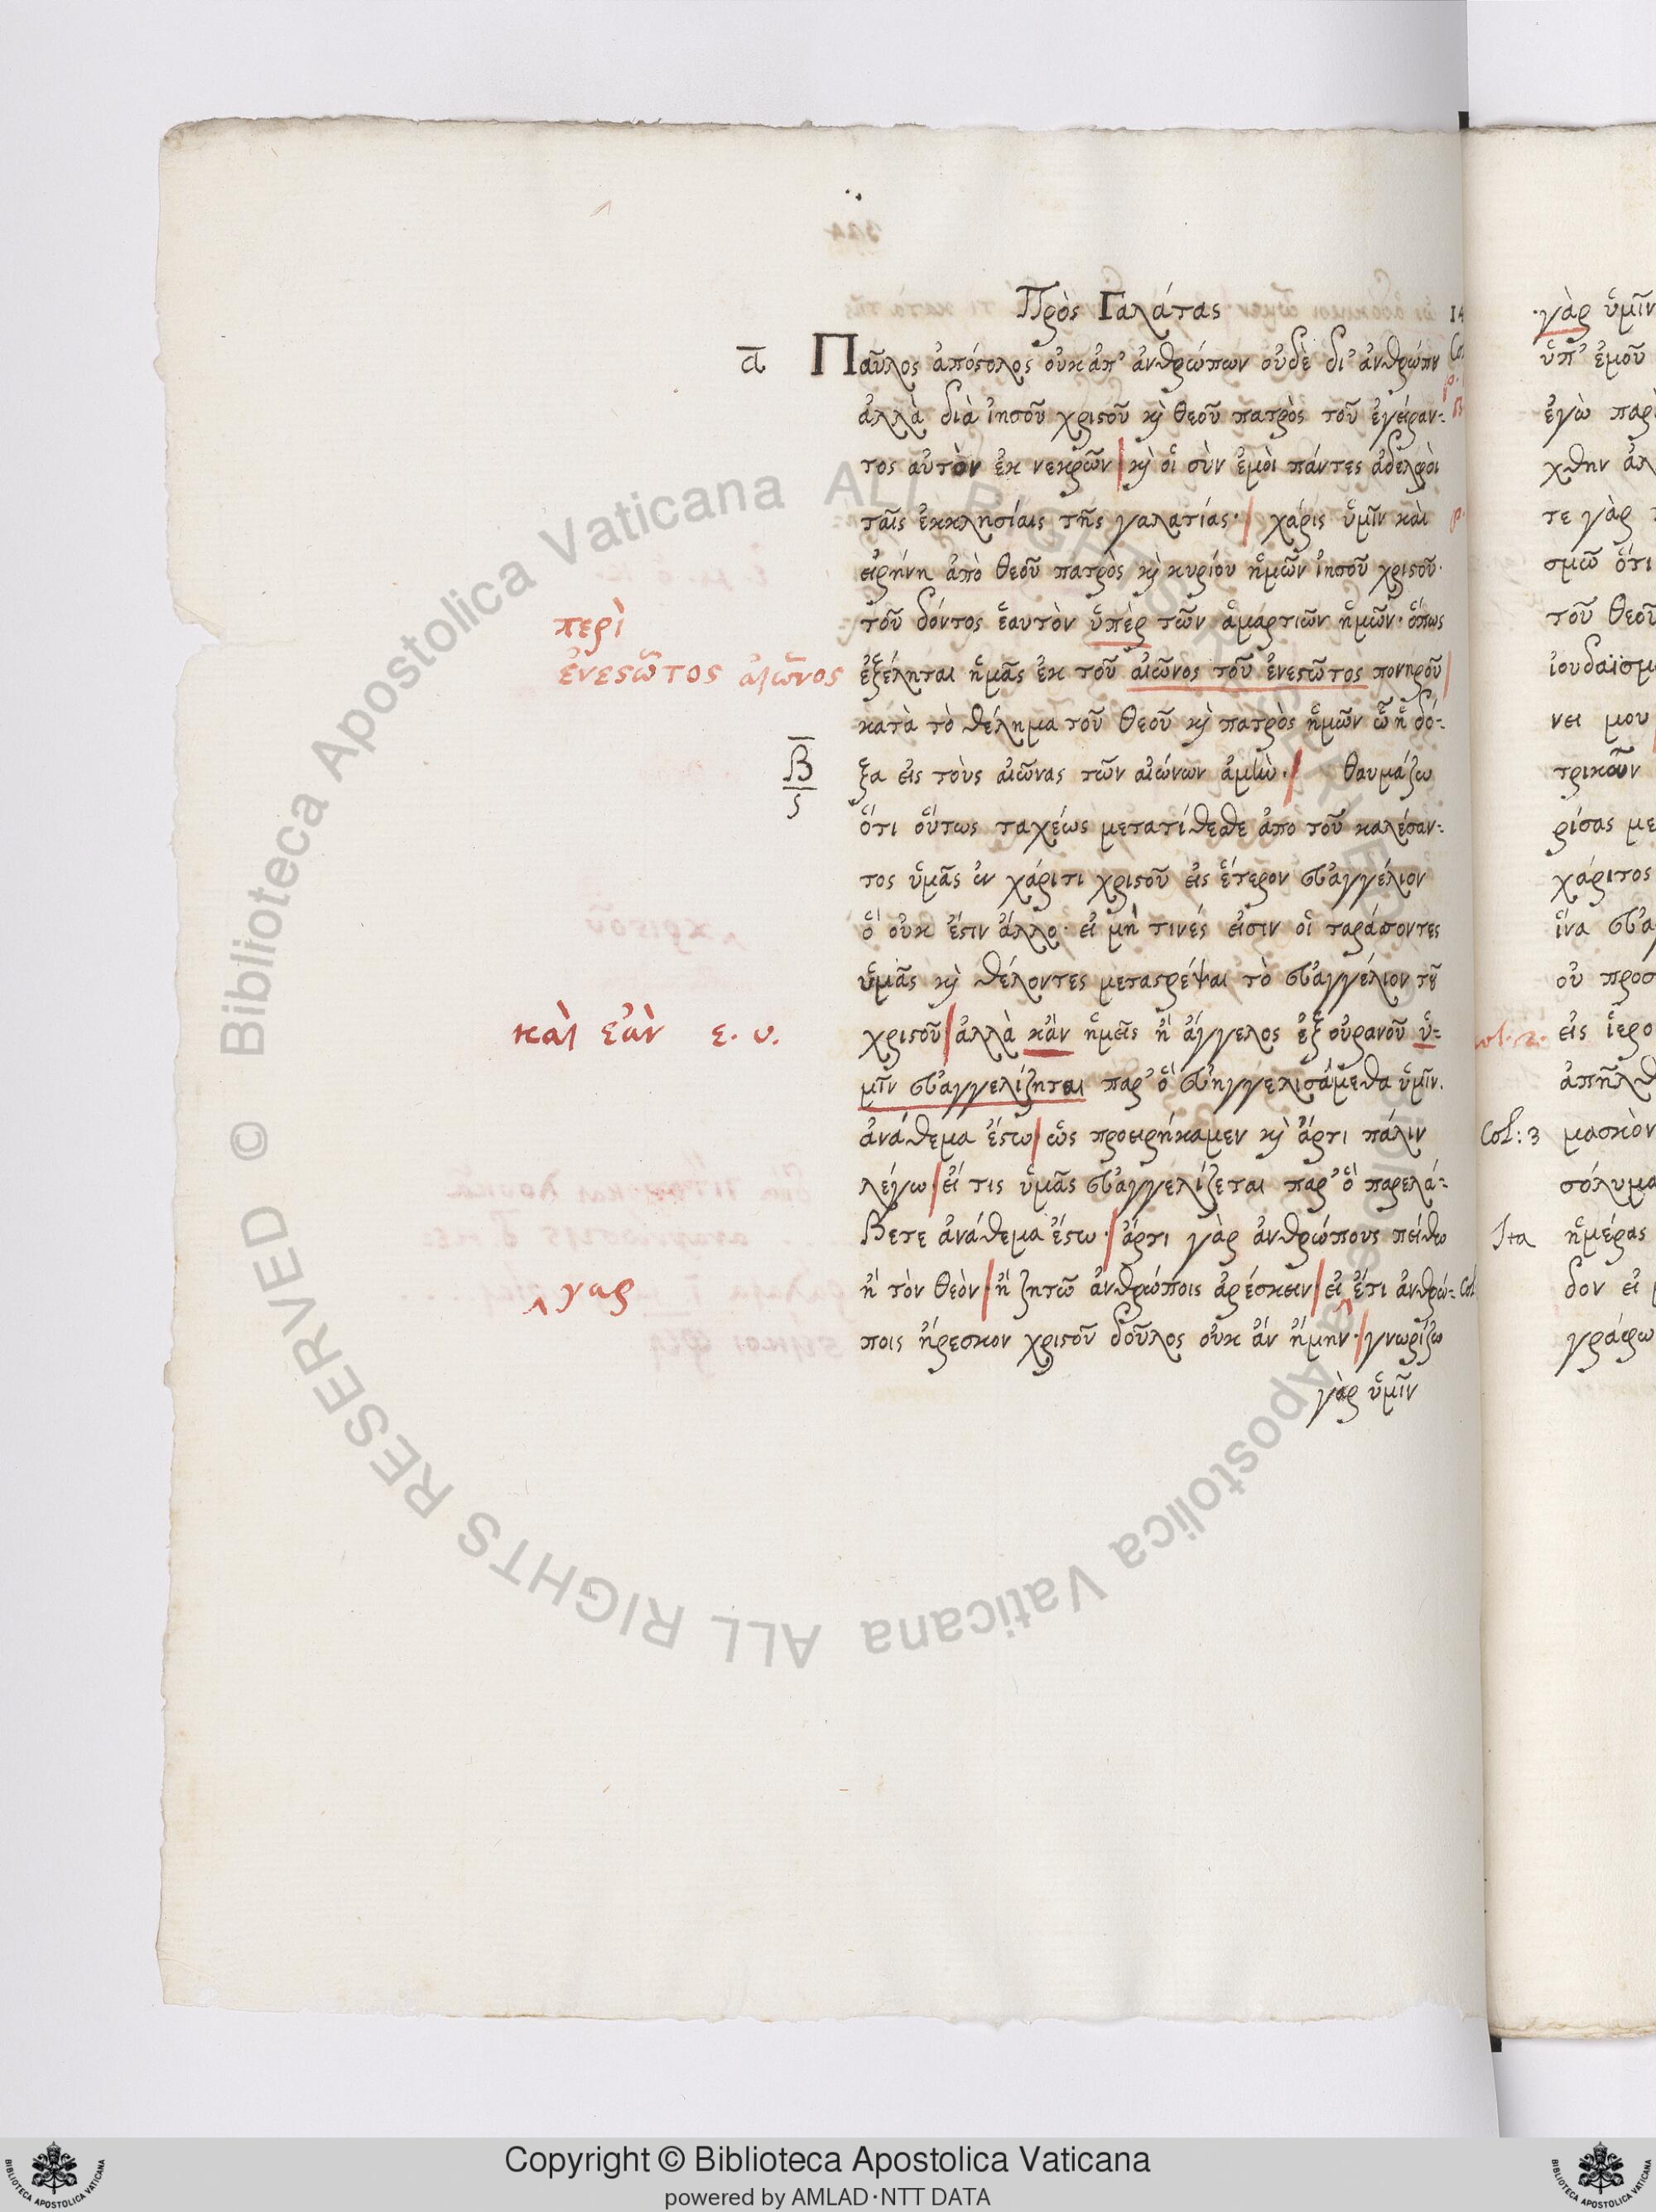 Πρὸς Γαλάτας
α Παῦλος ἀπόστολος οὐκ ἀπ' ἀνθρώπων οὐδὲ δι' ἀνθρώπων
ἀλλὰ διὰ ἰησοῦ χριστοῦ κὶ θεοῦ πατρὸς τοῦ ἐγείραν-
τος αὐτὸν ἐκ νεκρῶν / κὶ οἱ σὺν ἐμοὶ πάντες ἀδελφοὶ
ταῖς ἐκκλησίαις τῆς γαλατίας· / χάρις ὑμῖν καὶ
εἰρήνη ἀπὸ θεοῦ πατρὸς κὶ κυρίου ἡμῶν ἰησοῦ χριστοῦ·
περὶ
τοῦ δόντος ἑαυτὸν ὑπὲρ τῶν ἁμαρτιῶν ἡμῶν· ὅπως
ἐνεστῶτος αἰῶνος
ἐξέληται ἡμᾶς ἐκ τοῦ αἰῶνος τοῦ ἐνεστῶτος πονηροῦ /
κατὰ τὸ θέλημα τοῦ θεοῦ κὶ πατρὸς ἡμῶν ᾧ ἡ δό-
Β
ς
ξα εἰς τοὺς αἰῶνας τῶν αἰώνων ἀμήν· / θαυμάζω
ὅτι οὕτως ταχέως μετατίθεσθε ἀπο τοῦ καλέσαν-
τος ὑμᾶς ἐν χάριτι χριστοῦ εἰς ἕτερον εὐαγγέλιον
ὅ οὐκ ἔστιν ἄλλο· εἰ μή τινές εἰσιν οἱ ταράσσοντες
ὑμᾶς κὶ θέλοντες μεταστρέψαι τὸ εὐαγγέλιον τοῦ
καὶ εὰν ε. υ.
χριστοῦ / ἀλλὰ κἂν ἡμεῖς ἢ ἄγγελος ἐξ οὐρανοῦ ὑ-
μῖν εὐαγγελίζηται παρ' ὃ εὐηγγελισάμεθα ὑμῖν.
ἀνάθεμα ἔστω / ὡς προειρήκαμεν κὶ ἄρτι πάλιν
λέγω / εἴ τις ὑμᾶς εὐαγγελίζεται παρ' ὃ παρελά-
βετε ἀνάθεμα ἔστω· / ἄρτι γὰρ ἀνθρώπους πείθω
γαρ
ἢ τὸν θεὸν· / ἢ ζητῶ ἀνθρώποις ἀρέσκειν / εἰ ἔτι ἀνθρώ-
ποις ἤρεσκον χριστοῦ δοῦλος οὐκ ἂν ἤμην· / γνωρίζω
γὰρ ὑμῖν
·γὰρ ὑμῖν
ὑπ' ἐμοῦ
ἐγὼ
τε γὰρ
ὅτι
τοῦ θεοῦ
νει μου
ρίσας με
χάριτος
ἵνα
οὐ
εἰς
Col: 3
Ita ἡμέρας
δον εἰ
γράφω
© Biblioteca Apostolica Vaticana ALL RIGHTS RESERVED
Copyright © Biblioteca Apostolica Vaticana
powered by AMLAD·NTT DATA